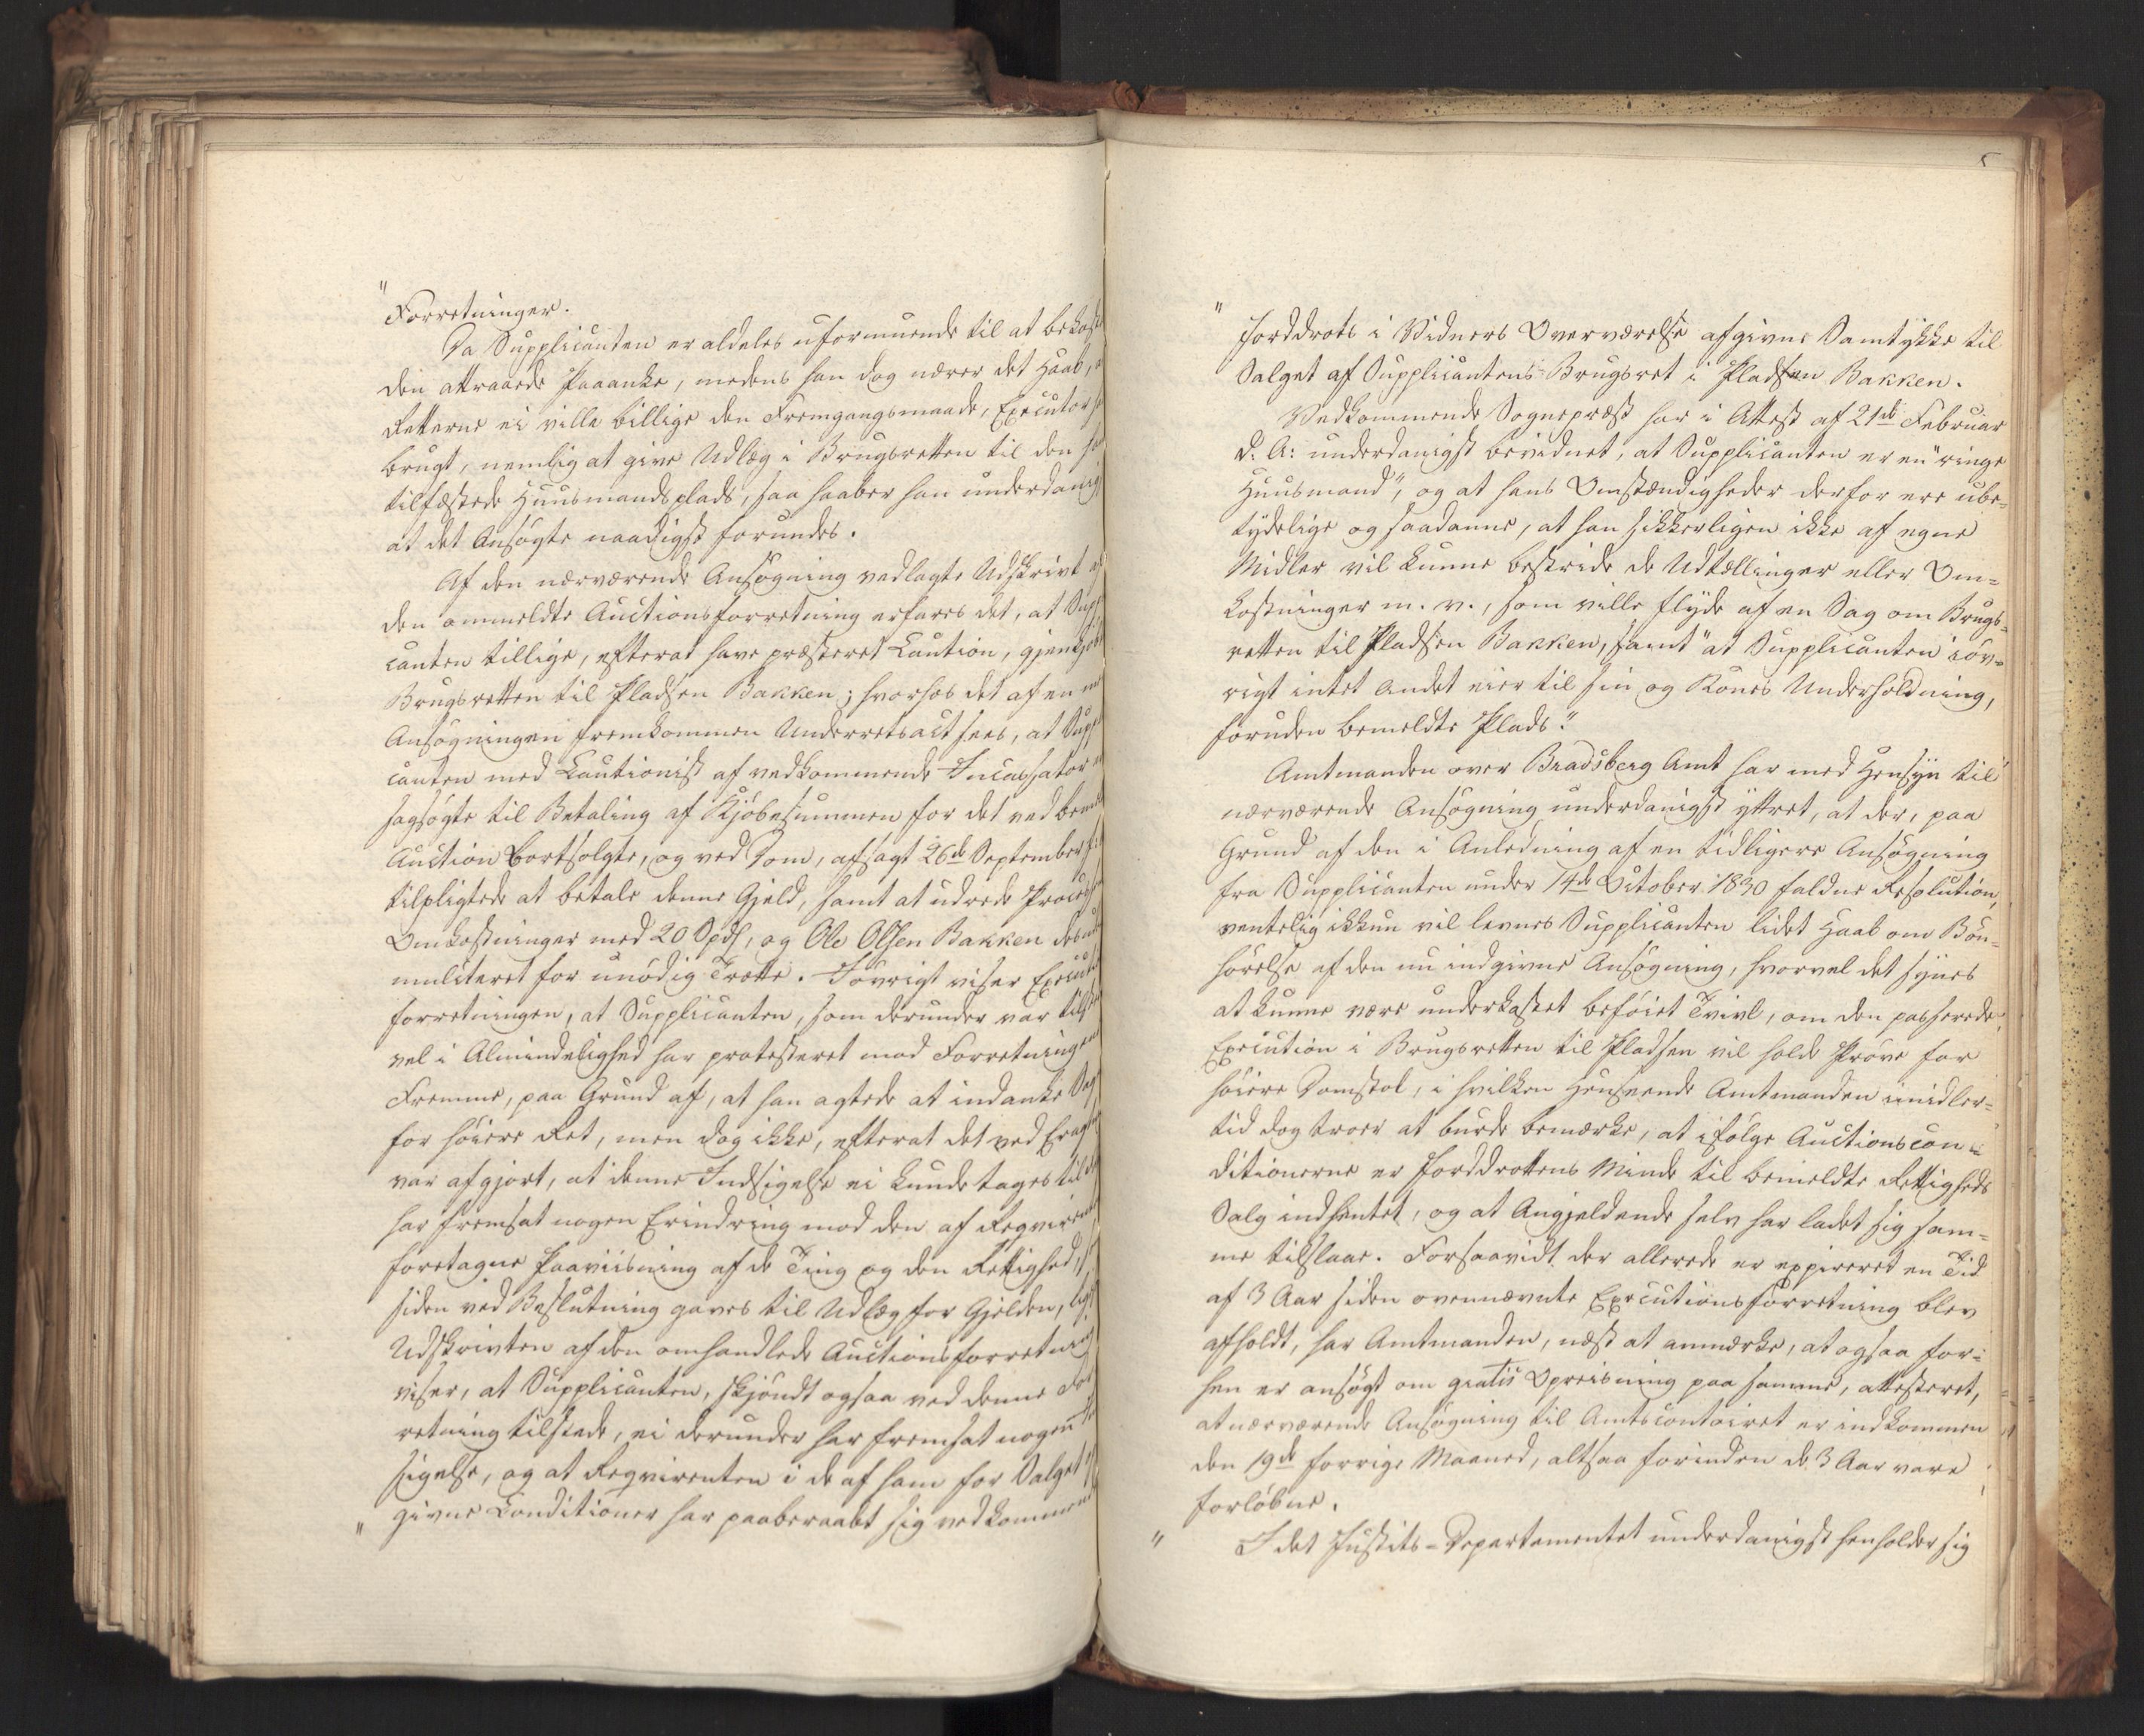 "
Forretninger.
Da Supplicanten er aldeles uformuende til at bekoste
den attraaede Paaanke, medens han dog nærer det Haab, 
Retterne ei ville billige den Fremgangsmaade, Executor
brugt, nemlig at give Udlæg i Brugsretten til den
tilfæstede Huusmandsplads, saa haaber han underdanig
at det Ansøgte naadigst forundes.
Af den nærværende Ansøgning vedlagte Udskrivt af
den ommeldte Auctionsforretning erfares det, at Supp
canten tillige, efterat have præsteret Caution, gjenkjøb
Brugsretten til Pladsen Bakken; hvorhos det af en
Ansøgningen fremkommen Underretsact sees, at Supp
canten med Cautionist af vedkommende Incassator
sagsøgte til Betaling af Kjøbesummen for det ved bem
Auction bortsolgte, og ved Dom, afsagt 26de September
tilpligtede at betale denne Gjeld, samt at udrede Process
Omkostninger med 20 Spd, og Ole Olsen Bakken
mulcteret for unødig Trætte. Iøvrigt viser Execut
forretningen, at Supplicanten, som derunder var tilst
vel i Almindelighed har protesteret mod Forretningen
Fremme, paa Grund af, at han agtede at indanke Sag
for høiere Ret, men dog ikke, efterat det ved Eragt
var afgjort, at denne Indsigelse ei kunde tages til
har fremsat nogen Erindring mod den af Reqvirent
foretagne Paaviisning af de Ting og den Rettighed,
siden ved Beslutning gaves til Udlæg for Gjelden, lige
Udskrivten af den omhandlede Auctionsforretning
viser, at Supplicanten, skjøndt ogsaa ved denne For
retning tilstede, ei derunder har fremsat nogen
sigelse, og at Reqvirenten i de af ham for Salget
" givne Conditioner har paaberaabt sig vedkommend
5
"
Jorddrots i Vidners Overværelse afgivne Samtykke til
Salget af Supplicantens Brugsret i Pladsen Bakken.
Vedkommende Sognepræst har i Attest af 21de Februar
d. A: underdanigst bevidnet, at Supplicanten er en "ringe
Huusmand", og at hans Omstændigheder derfor ere ube-
tydelige og saadanne, at han sikkerligen ikke af egne
Midler vil kunne bestride de Udtællinger eller Om-
kostninger m. v., som ville flyde af en Sag om Brugs-
retten til Pladsen Bakken, samt "at Supplicanten iøv-
rigt intet Andet eier til sin og Kones Underholdning,
foruden bemeldte Plads."
Amtmanden over Bradsberg Amt har med Hensyn til
nærværende Ansøgning underdanigst yttret, at der, paa
Grund af den i Anledning af en tidligere Ansøgning
fra Supplicanten under 14de October 1830 faldne Resolution,
ventelig ikkun vil levnes Supplicanten lidet Haab om Bøn-
hørelse af den nu indgivne Ansøgning, hvorvel det synes
at kunne være underkastet beføiet Tvivl, om den passerede
Execution i Brugsretten til Pladsen vil holde Prøve for
høiere Domstol, i hvilken Henseende Amtmanden imidler-
tid dog troer at burde bemærke, at ifølge Auctionscon-
ditionerne er Jorddrottens Minde til bemeldte Rettigheds
Salg indhentet, og at Angjeldende selv har ladet sig sam-
me tilslaae. Forsaavidt der allerede er expireret en Tid
af 3 Aar siden ovennævnte Executionsforretning blev
afholdt, har Amtmanden, næst at anmærke, at ogsaa for-
hen er ansøgt om gratis Opreisning paa samme, attesteret,
at nærværende Ansøgning til Amtscontoiret er indkommen
den 19de forrige Maaned, altsaa forinden de 3 Aar vare
forløbne.
" I det Justits-Departementet underdanigst henholder sig